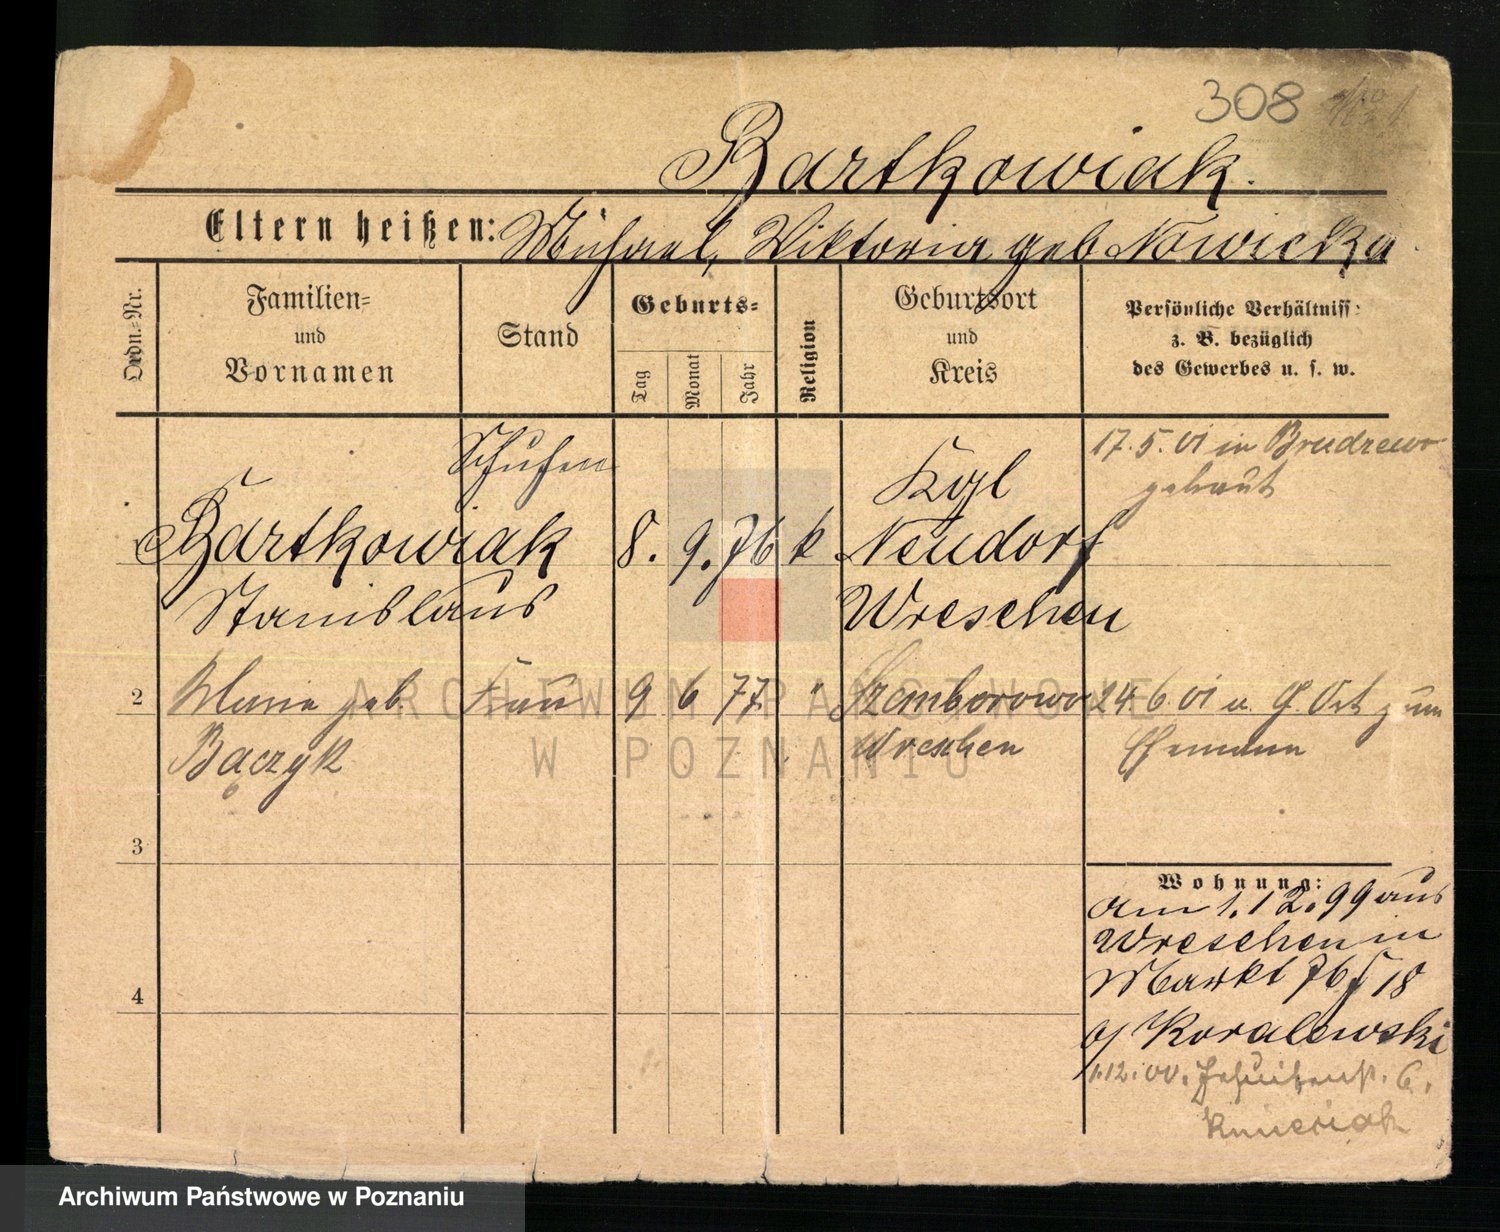 308
Bartkowiak.
Eltern heißen: Michael, Wiktoria geb Nowicka
Ordn.=Nr.
Familien=
und
Vornamen
Stand
Geburts=
Tag
Monat
Jahr
Religion
Geburtsort
und
Kreis
Persönliche Verhältniss:
z. B. bezüglich
des Gewerbes u. s. w.
Bartkowiak
Stanislaus
8. 9. 76 k
Kgl
Neudorf
Wreschen
17. 5. 01 in Brudzewo
getraut
2 Maria geb. Frau 9 6 77 " Szemborowo
Bączyk
Wreschen
24 6 01 v. Ort zum
Ehemann
3
4
Wohnung:
am 1. 12. 99 aus
Wreschen in
Markt 76 18
Koralewski
1.12.00. 6.
ARCHIWUM PAŃSTWOWE
W POZNANIU
Archiwum Państwowe w Poznaniu